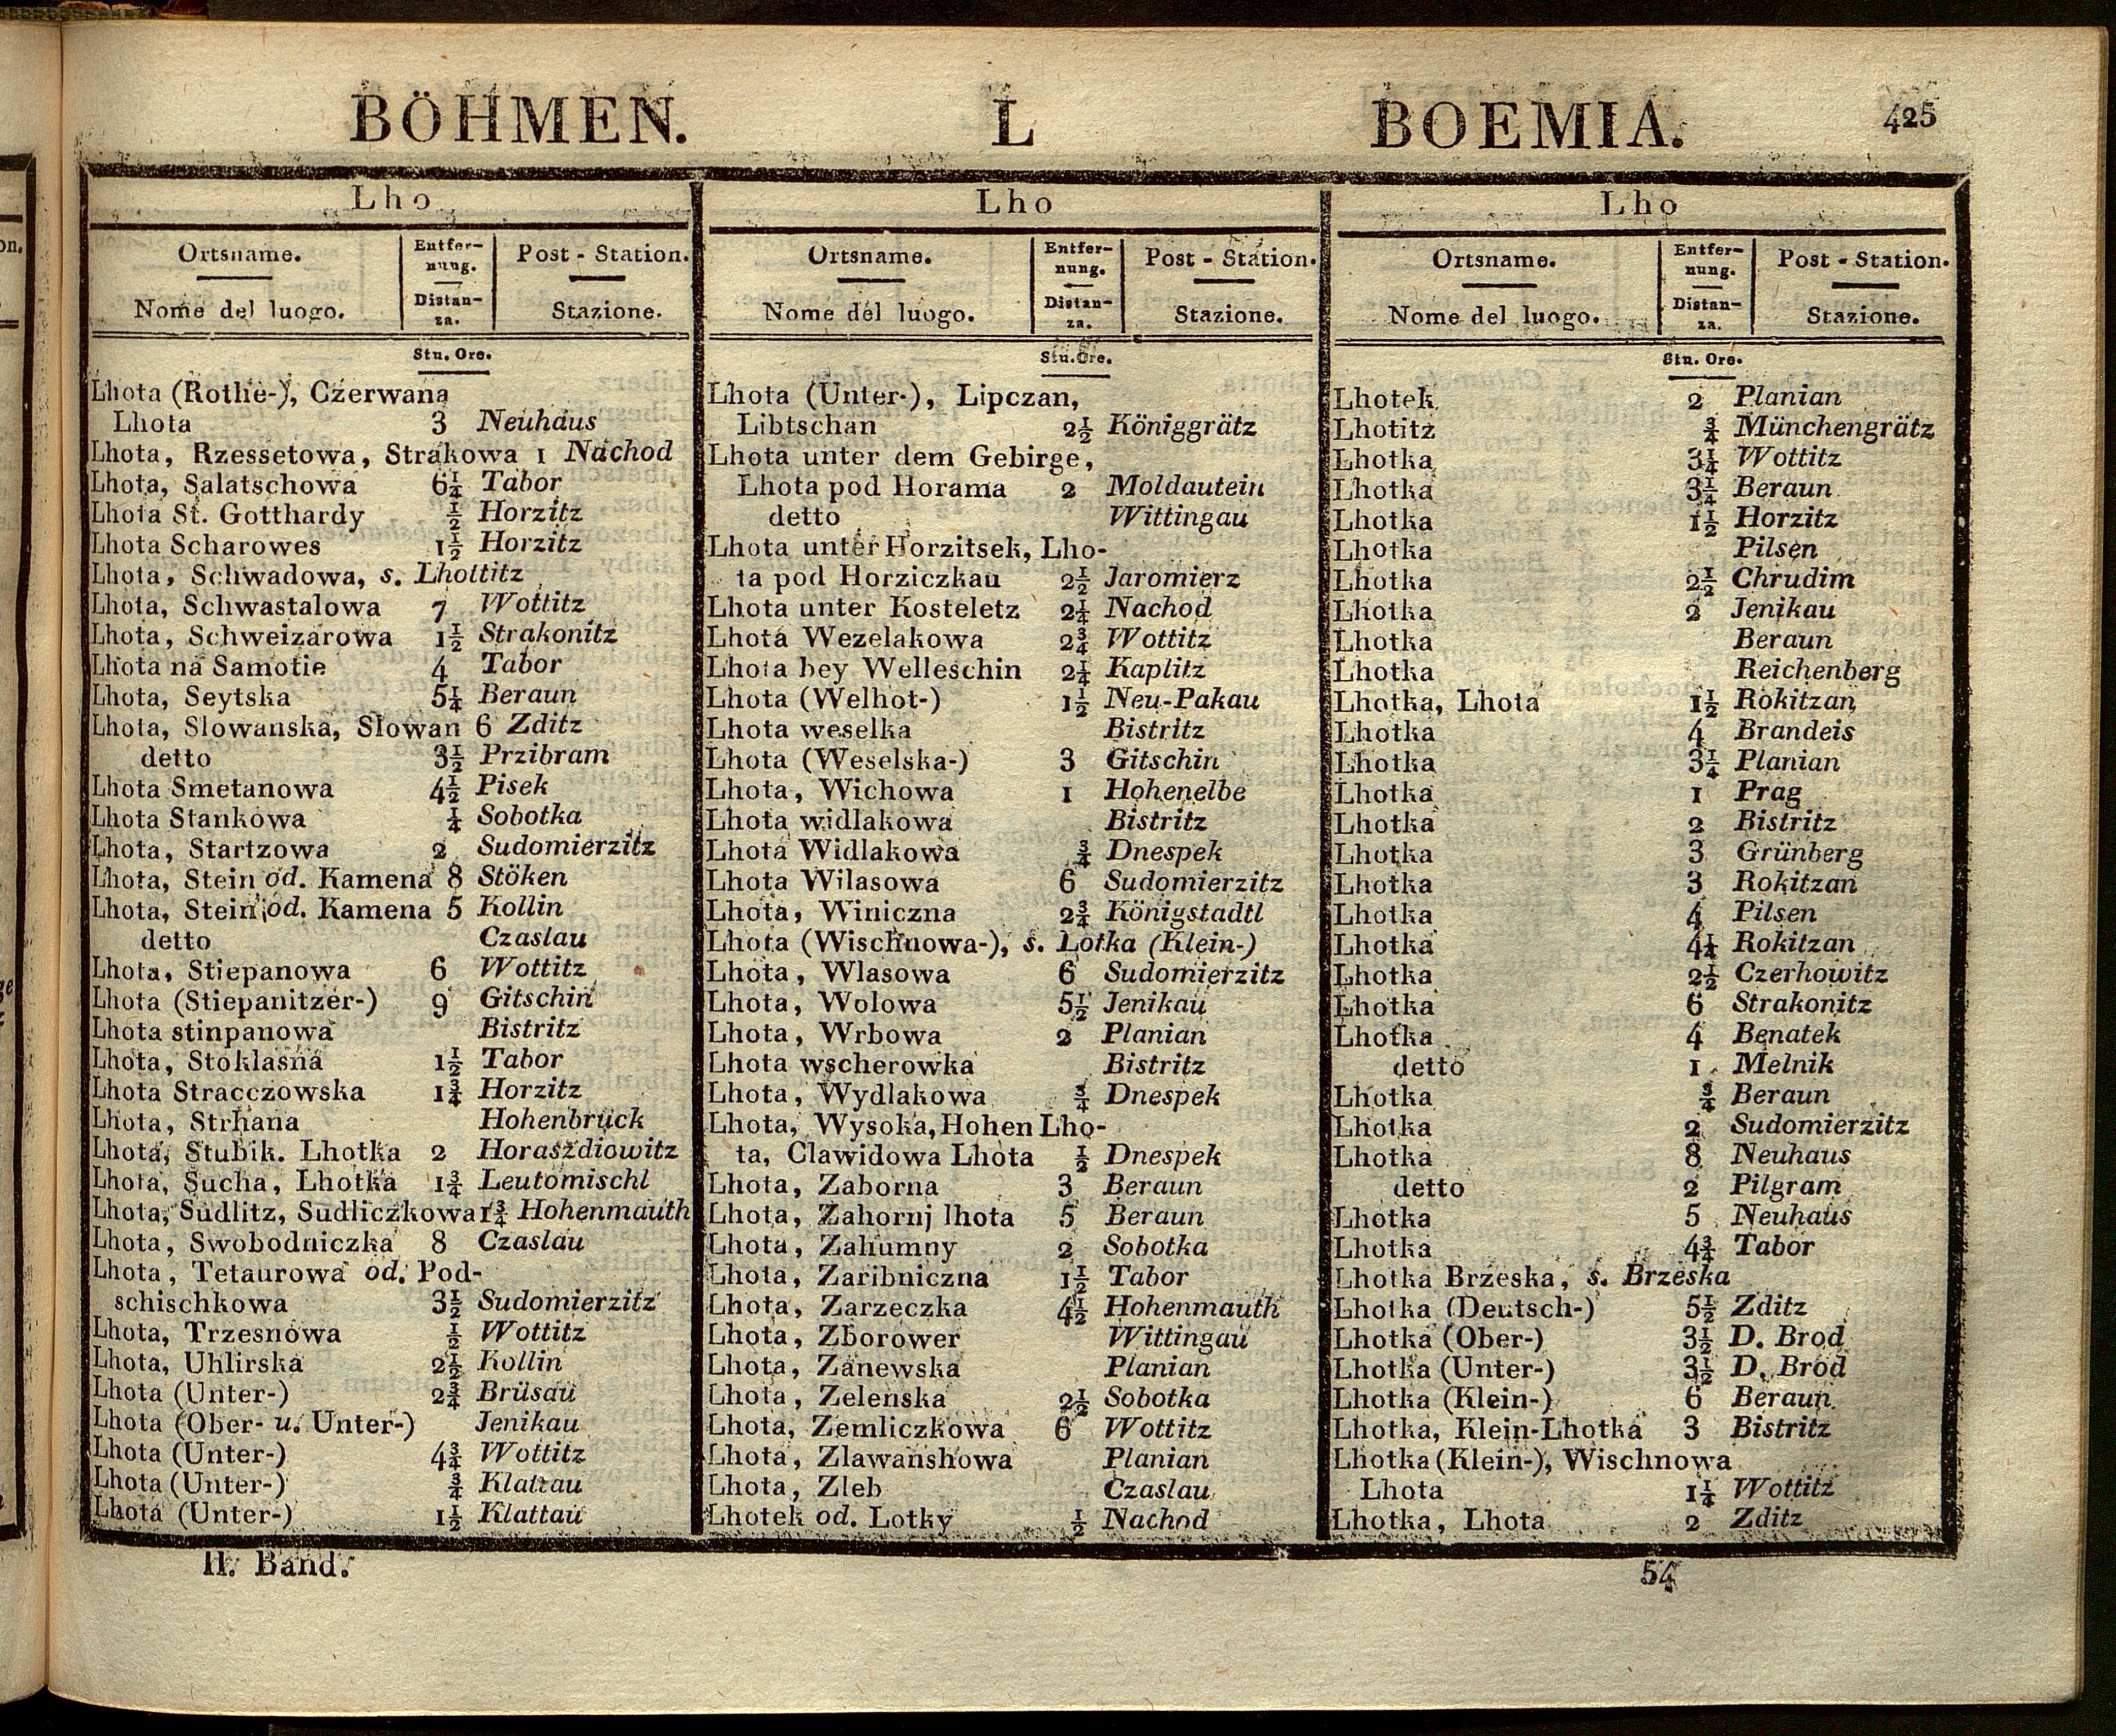 BÖHMEN. L BOEMIA. 425
Lho
Ortsname. Entfer- Post - Station.
nung.
Nome del luogo. Distan- Stazione.
za.
Stu. Ore.
Lhota (Rothe-), Czerwana
Lhota 3 Neuhaus
Lhota, Rzessetowa, Strakowa 1 Nachod
Lhota, Salatschowa 6¼ Tabor
Lhota St. Gotthardy ½ Horzitz
Lhota Scharowes 1½ Horzitz
Lhota, Schwadowa, s. Lhottitz
Lhota, Schwastalowa 7 Wottitz
Lhota, Schweizarowa 1½ Strakonitz
Lhota na Samotie 4 Tabor
Lhota, Seytska 5¼ Beraun
Lhota, Slowanska, Slowan 6 Zditz
detto 3½ Przibram
Lhota Smetanowa 4½ Pisek
Lhota Stankowa ¼ Sobotka
Lhota, Startzowa 2 Sudomierzitz
Lhota, Stein od. Kamena 8 Stöken
Lhota, Stein od. Kamena 5 Kollin
detto Czaslau
Lhota, Stiepanowa 6 Wottitz
Lhota (Stiepanitzer-) 9 Gitschin
Lhota stinpanowa Bistritz
Lhota, Stoklasna 1½ Tabor
Lhota Stracczowska 1¾ Horzitz
Lhota, Strhana Hohenbruck
Lhota, Stubik. Lhotka 2 Horaszdiowitz
Lhota, Sucha, Lhotka 1¾ Leutomischl
Lhota, Sudlitz, Sudliczkowa 1¾ Hohenmauth
Lhota, Swobodniczka 8 Czaslau
Lhota, Tetaurowa od. Pod-
schischkowa 3½ Sudomierzitz
Lhota, Trzesnowa ½ Wottitz
Lhota, Uhlirska 2½ Kollin
Lhota (Unter-) 2¾ Brüsau
Lhota (Ober- u. Unter-) Jenikau
Lhota (Unter-) 4¾ Wottitz
Lhota (Unter-) ¾ Klattau
Lhota (Unter-) 1½ Klattau
Lho
Ortsname. Entfer- Post - Station.
nung.
Nome del luogo. Distan- Stazione.
za.
Stu. Ore.
Lhota (Unter-), Lipczan,
Libtschan 2½ Königgrätz
Lhota unter dem Gebirge,
Lhota pod Horama 2 Moldautein
detto Wittingau
Lhota unter Horzitsek, Lho-
ta pod Horziczkau 2½ Jaromierz
Lhota unter Kosteletz 2¼ Nachod
Lhota Wezelakowa 2¾ Wottitz
Lhota bey Welleschin 2¼ Kaplitz
Lhota (Welhot-) 1½ Neu-Pakau
Lhota weselka Bistritz
Lhota (Weselska-) 3 Gitschin
Lhota, Wichowa 1 Hohenelbe
Lhota widlakowa Bistritz
Lhota Widlakowa ¾ Dnespek
Lhota Wilasowa 6 Sudomierzitz
Lhota, Winiczna 2¾ Königstadtl
Lhota (Wischnowa-), s. Lotka (Klein-)
Lhota, Wlasowa 6 Sudomierzitz
Lhota, Wolowa 5½ Jenikau
Lhota, Wrbowa 2 Planian
Lhota wscherowka Bistritz
Lhota, Wydlakowa ¾ Dnespek
Lhota, Wysoka, Hohen Lho-
ta, Clawidowa Lhota ½ Dnespek
Lhota, Zaborna 3 Beraun
Lhota, Zahornj lhota 5 Beraun
Lhota, Zahumny 2 Sobotka
Lhota, Zaribniczna 1½ Tabor
Lhota, Zarzeczka 4½ Hohenmauth
Lhota, Zborower Wittingau
Lhota, Zanewska Planian
Lhota, Zelenska 2½ Sobotka
Lhota, Zemliczkowa 6 Wottitz
Lhota, Zlawanshowa Planian
Lhota, Zleb Czaslau
Lhotek od. Lotky ½ Nachod
Lho
Ortsname. Entfer- Post - Station.
nung.
Nome del luogo. Distan- Stazione.
za.
Stu. Ore.
Lhotek 2 Planian
Lhotitz ¾ Münchengrätz
Lhotka 3¼ Wottitz
Lhotka 3¼ Beraun
Lhotka 1½ Horzitz
Lhotka Pilsen
Lhotka 2½ Chrudim
Lhotka 2 Jenikau
Lhotka Beraun
Lhotka Reichenberg
Lhotka, Lhota 1½ Rokitzan
Lhotka 4 Brandeis
Lhotka 3¼ Planian
Lhotka 1 Prag
Lhotka 2 Bistritz
Lhotka 3 Grünberg
Lhotka 3 Rokitzan
Lhotka 4 Pilsen
Lhotka 4¼ Rokitzan
Lhotka 2½ Czerhowitz
Lhotka 6 Strakonitz
Lhotka 4 Benatek
detto 1 Melnik
Lhotka ¾ Beraun
Lhotka 2 Sudomierzitz
Lhotka 8 Neuhaus
detto 2 Pilgram
Lhotka 5 Neuhaus
Lhotka 4¾ Tabor
Lhotka Brzeska, s. Brzeska
Lhotka (Deutsch-) 5½ Zditz
Lhotka (Ober-) 3½ D. Brod
Lhotka (Unter-) 3½ D. Brod
Lhotka (Klein-) 6 Beraun
Lhotka, Klein-Lhotka 3 Bistritz
Lhotka (Klein-), Wischnowa
Lhota 1¼ Wottitz
Lhotka, Lhota 2 Zditz
II. Band. 54